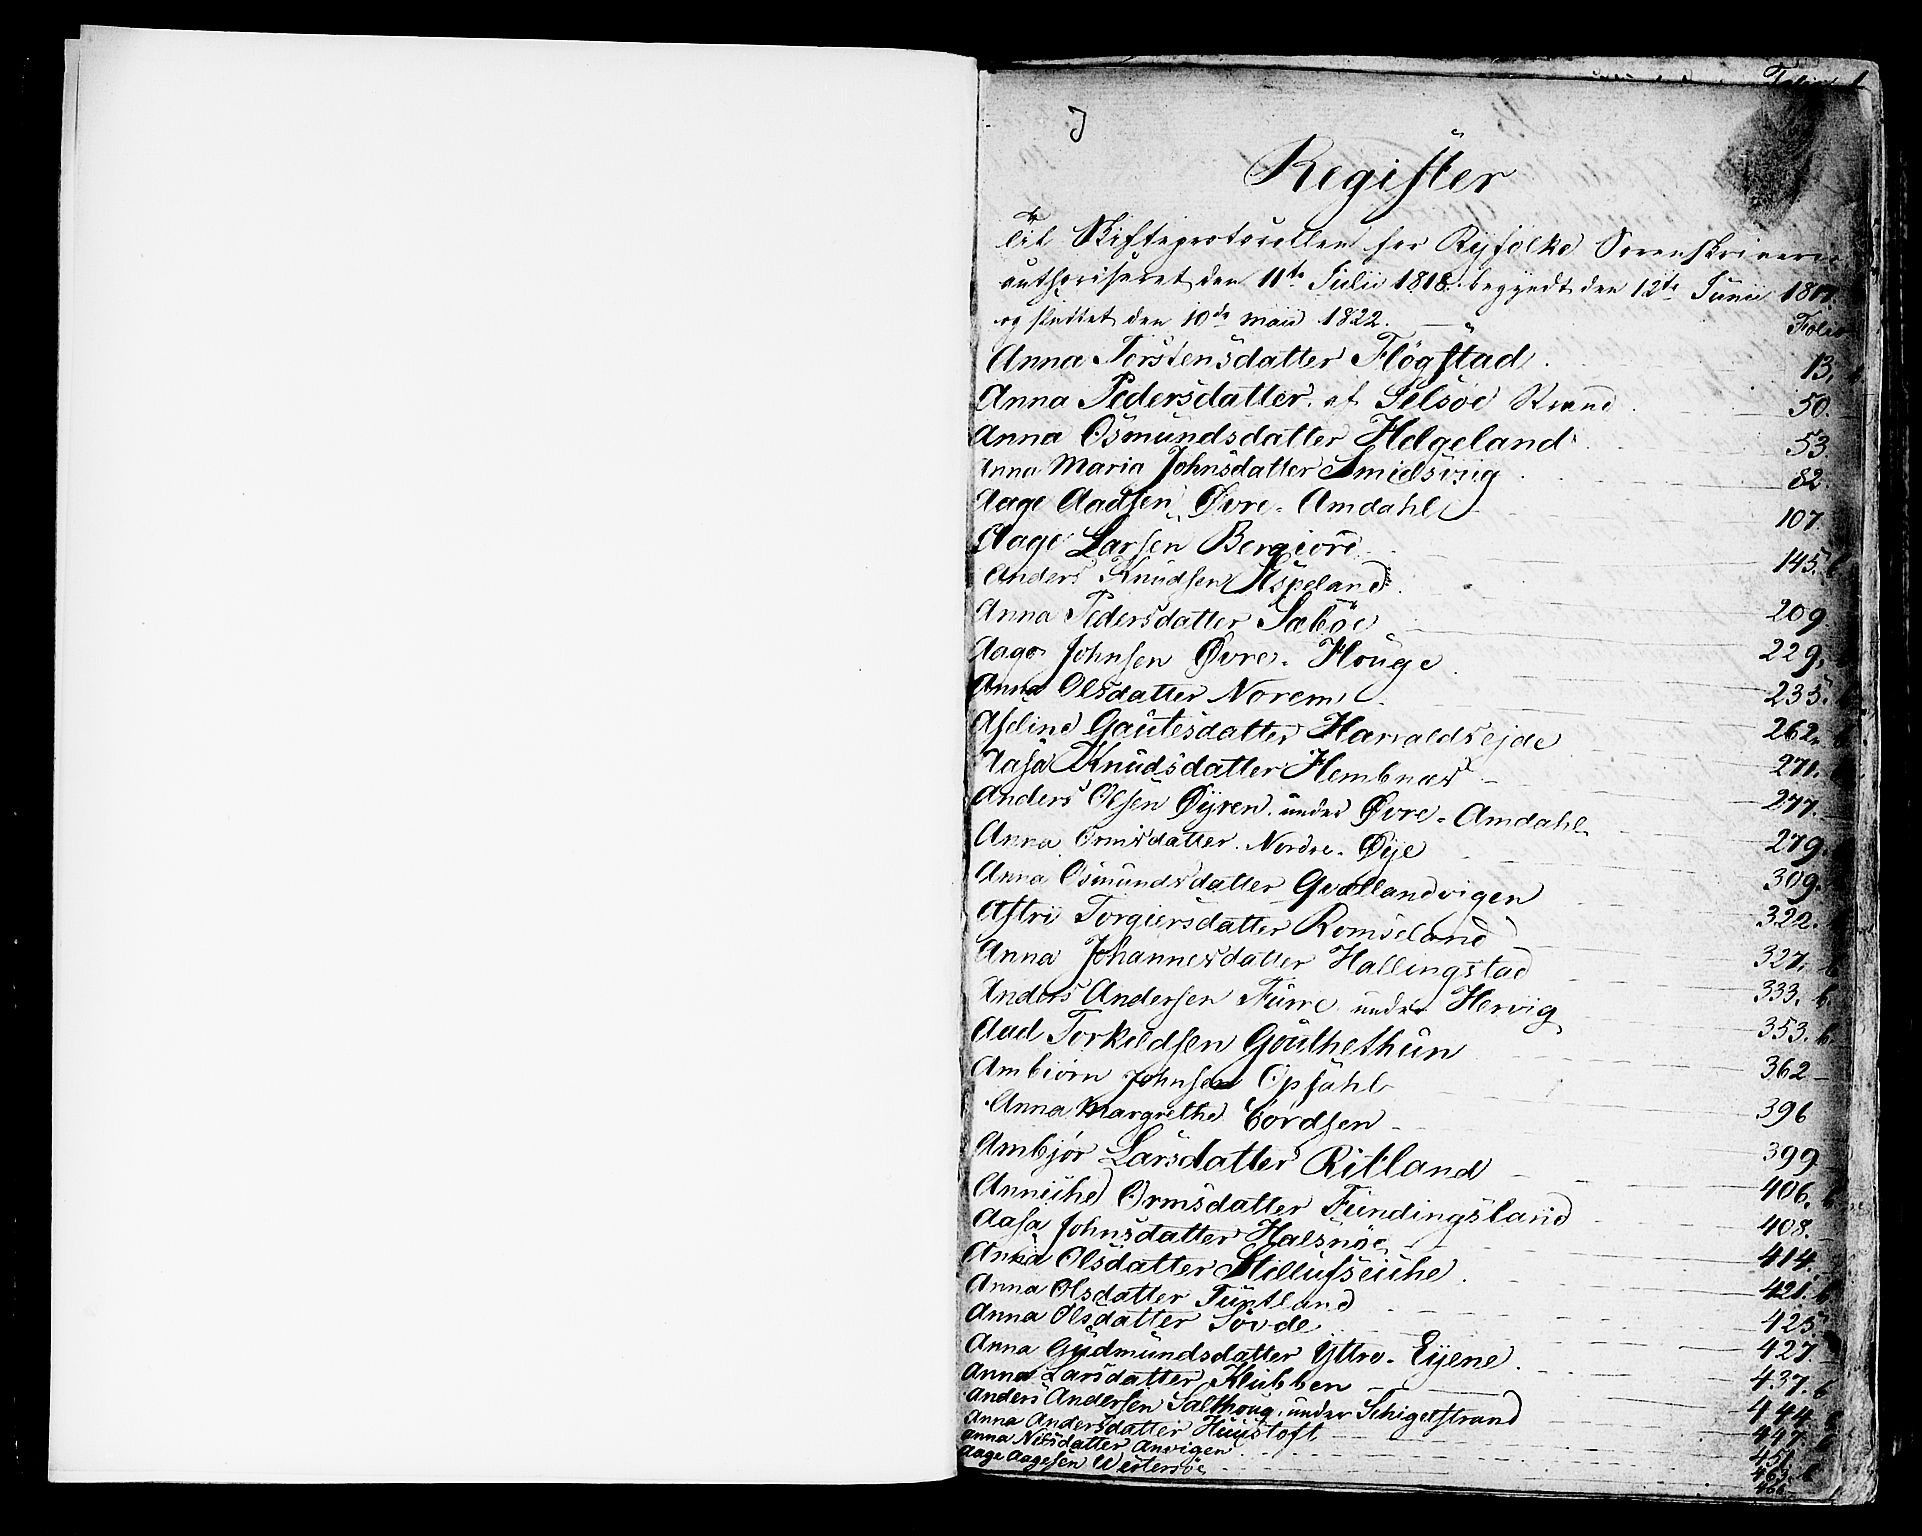 Folio 1
J
Register
til Skifteprotocollen for Ryfolke Sorenskriverie
authoriseret den 11te Julii 1818. begyndt den 12te Junii 18
og sluttet den 10de Maii 1822.
Folio
Anna Torstensdatter Fløgstad 13.
Anna Pedersdatter af Selsøe Strand 50.
Anna Osmundsdatter Helgeland 53
Anna Maria Johnsdatter Smidsviig 82
Aage Aadsen Øvre-Amdahl 107.
Aage Larsen Bergiore 145. b
Anders Knudsen Aspeland 209
Anna Pedersdatter Sæbøe 229. b
Aage Johnsen Øvre-Houge 235. b
Anna Olsdatter Norem 262. b
Aseline Gautesdatter Harvaldsejde 271. b
Aasa Knudsdatter Hembnæs 277.
Anders Olsen Øyren under Øvre-Amdahl 279.
Anna Ormsdatter Nordre-Øye 309.
Anna Osmundsdatter Qvallandvigen 322. b
Astri Torgiersdatter Romseland 327. b
Anna Johannesdatter Hallingstad 333. b.
Anders Andersen Furre under Hervig 353. b.
Aad Torkildsen Gouthethun 362
Ambiørn Johnsen Opsahl 396
Anna Margrethe Cordsen 399
Ambjør Larsdatter Ritland 406. b
Anniche Ormsdatter Fundingsland 408.
Aasa Johnsdatter Halsnøe 414.
Anna Olsdatter Stellufseiche 421. b
Anna Olsdatter Tuntland 425.
Anna Olsdatter Søvde 427.
Anna Gudmundsdatter Yttre-Eyene 437. b
Anna Larsdatter Klubben 444. b
Anders Andersen Salthoug under Schigelstrand 447. b
Anna Andersdatter Huustoft 451.
Anna Nilsdatter Anvigen 463. b
Aage Aagesen Westersøe 466